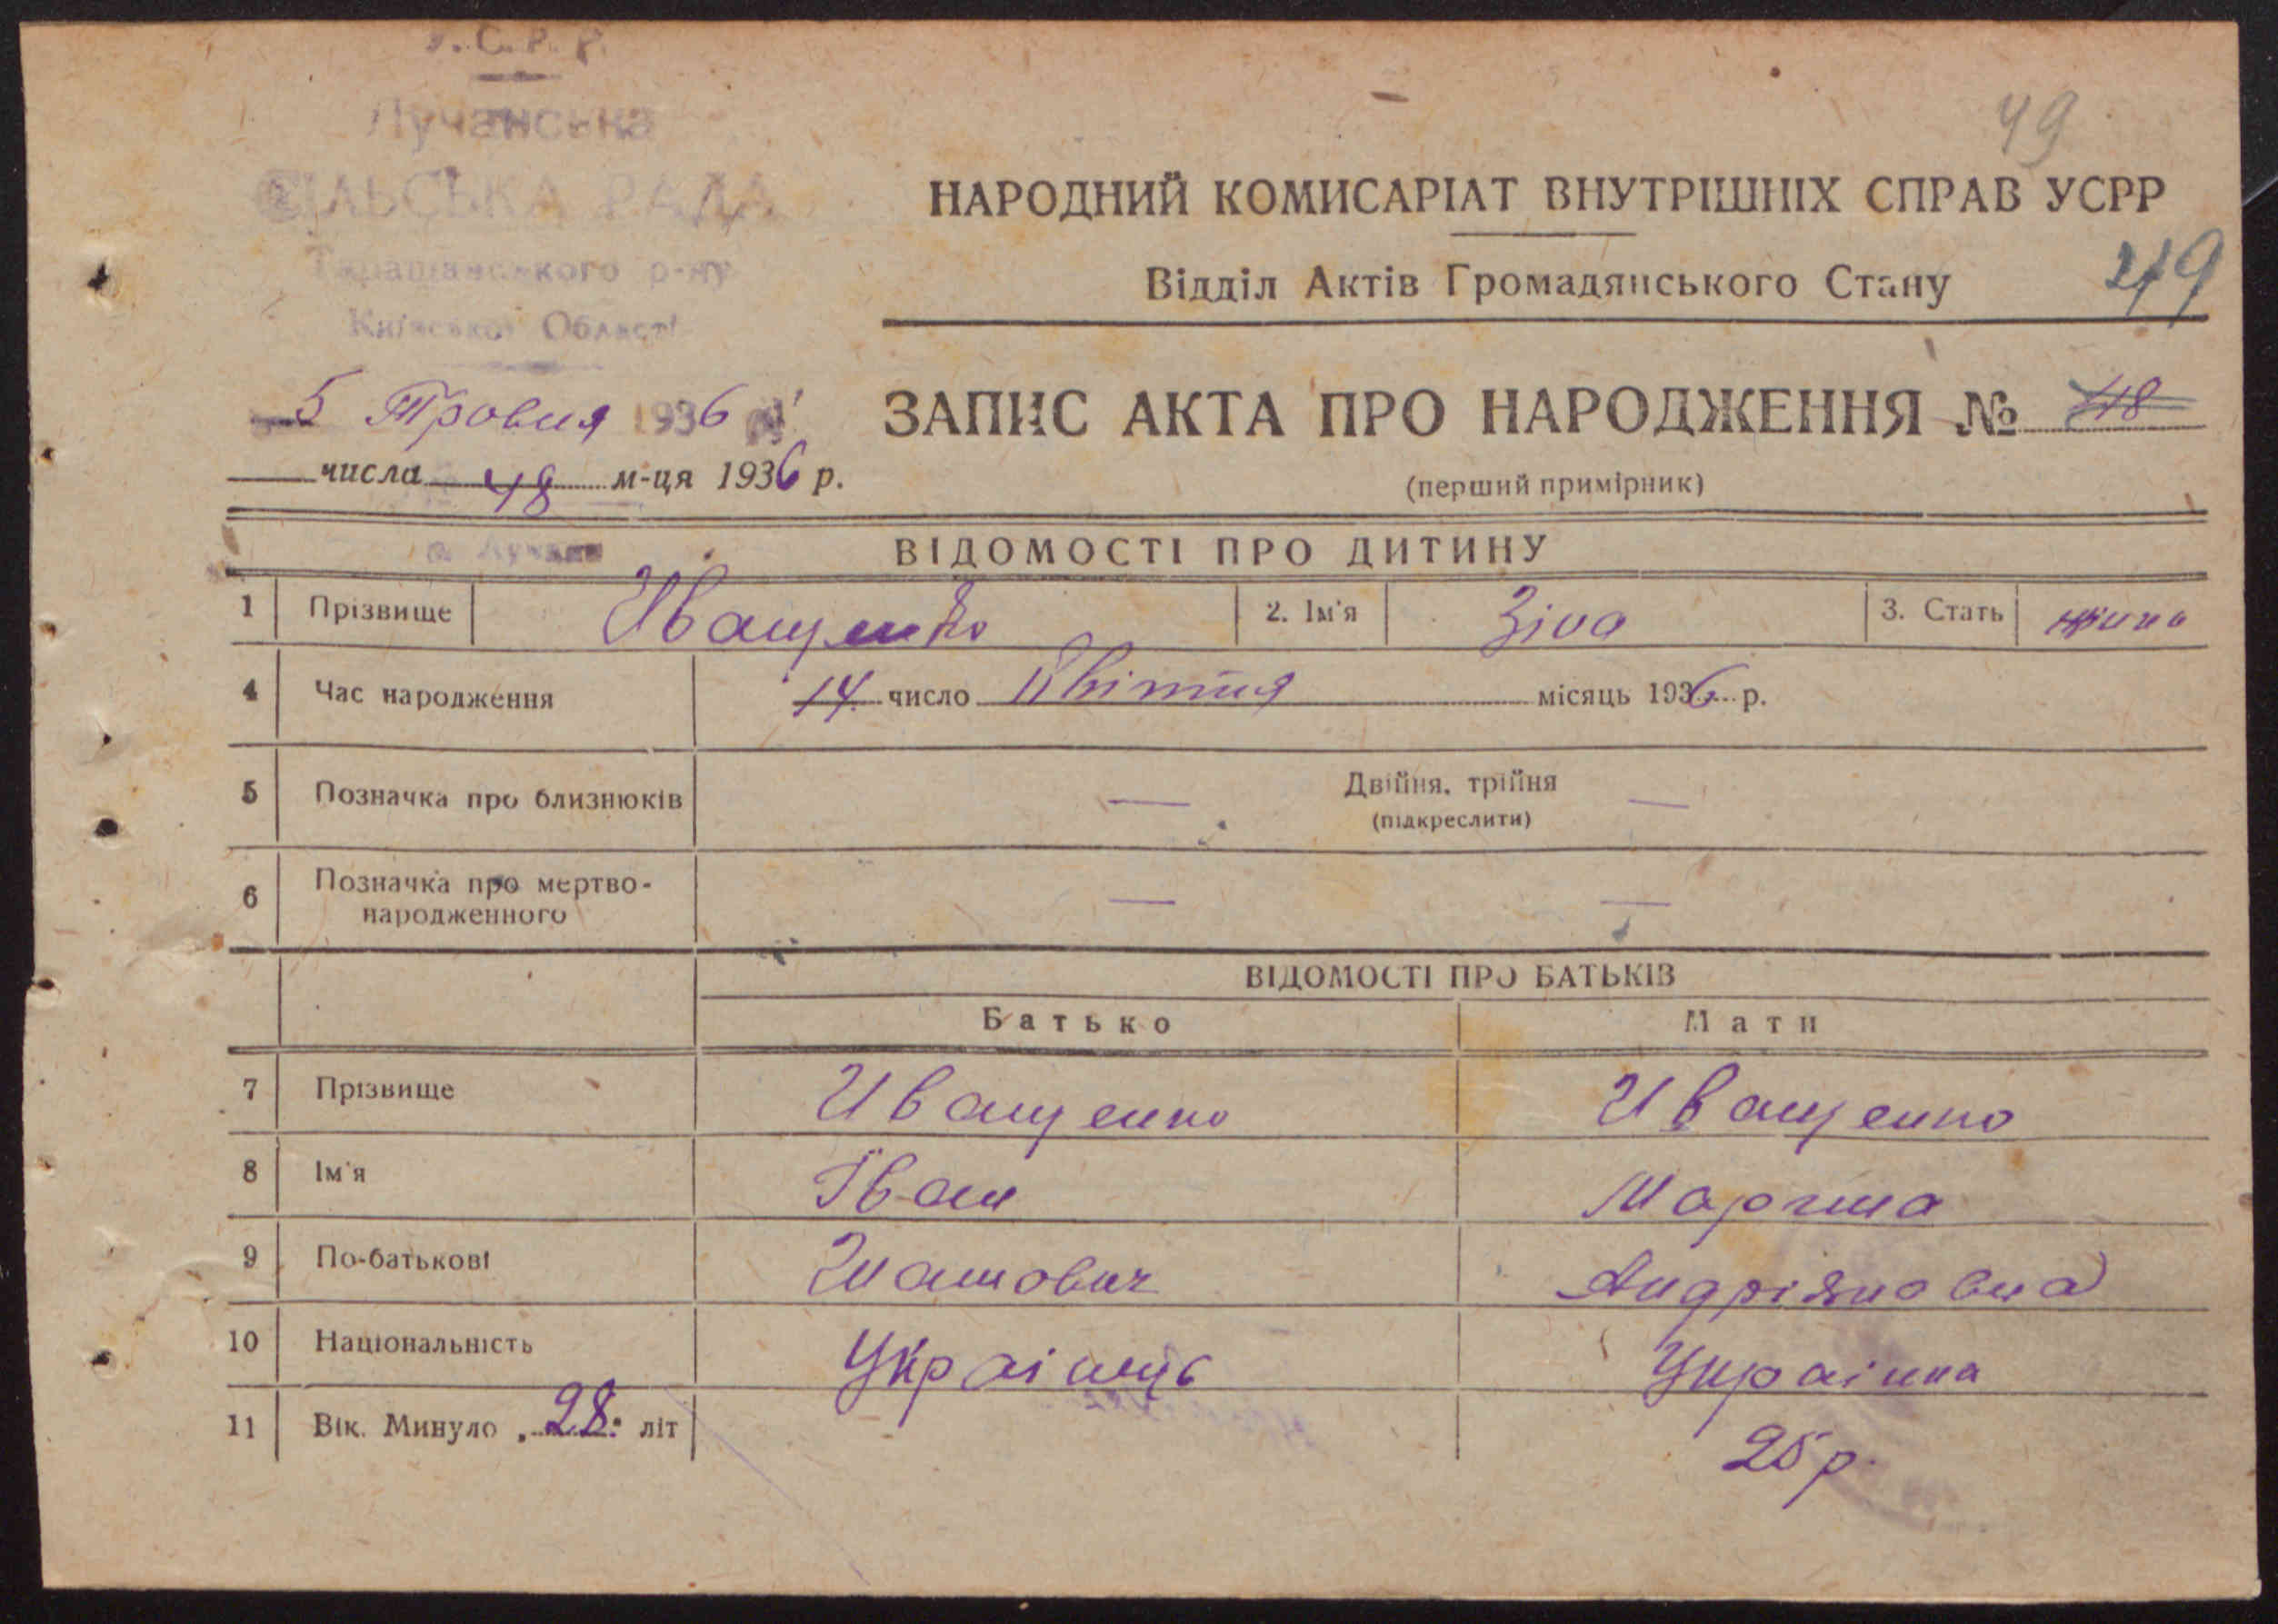 У.С.Р.Р.
Лучанська
СІЛЬСЬКА РАДА
Таращанського р-ну
Київської Області
49
НАРОДНИЙ КОМИСАРІАТ ВНУТРІШНІХ СПРАВ УСРР
Відділ Актів Громадянського Стану
49
5 Тровня 1936 р.
ЗАПИС АКТА ПРО НАРОДЖЕННЯ № 48
числа 48 м-ця 1936 р.
(перший примірник)
с. Лучани
ВІДОМОСТІ ПРО ДИТИНУ
1 Прізвище Иващенко 2. Ім'я Зіна 3. Стать жіна
4 Час народження 14 число Квітня місяць 1936 р.
5 Позначка про близнюків — Двійня, трійня —
(підкреслити)
6 Позначка про мертво-
народженного — —
ВІДОМОСТІ ПРО БАТЬКІВ
Батько Мати
7 Прізвище Иващенко Иващенко
8 Ім'я Іван
9 По-батькові Андріяновна
10 Національність Украінць Украінка
11 Вік. Минуло 28 літ 25 р.